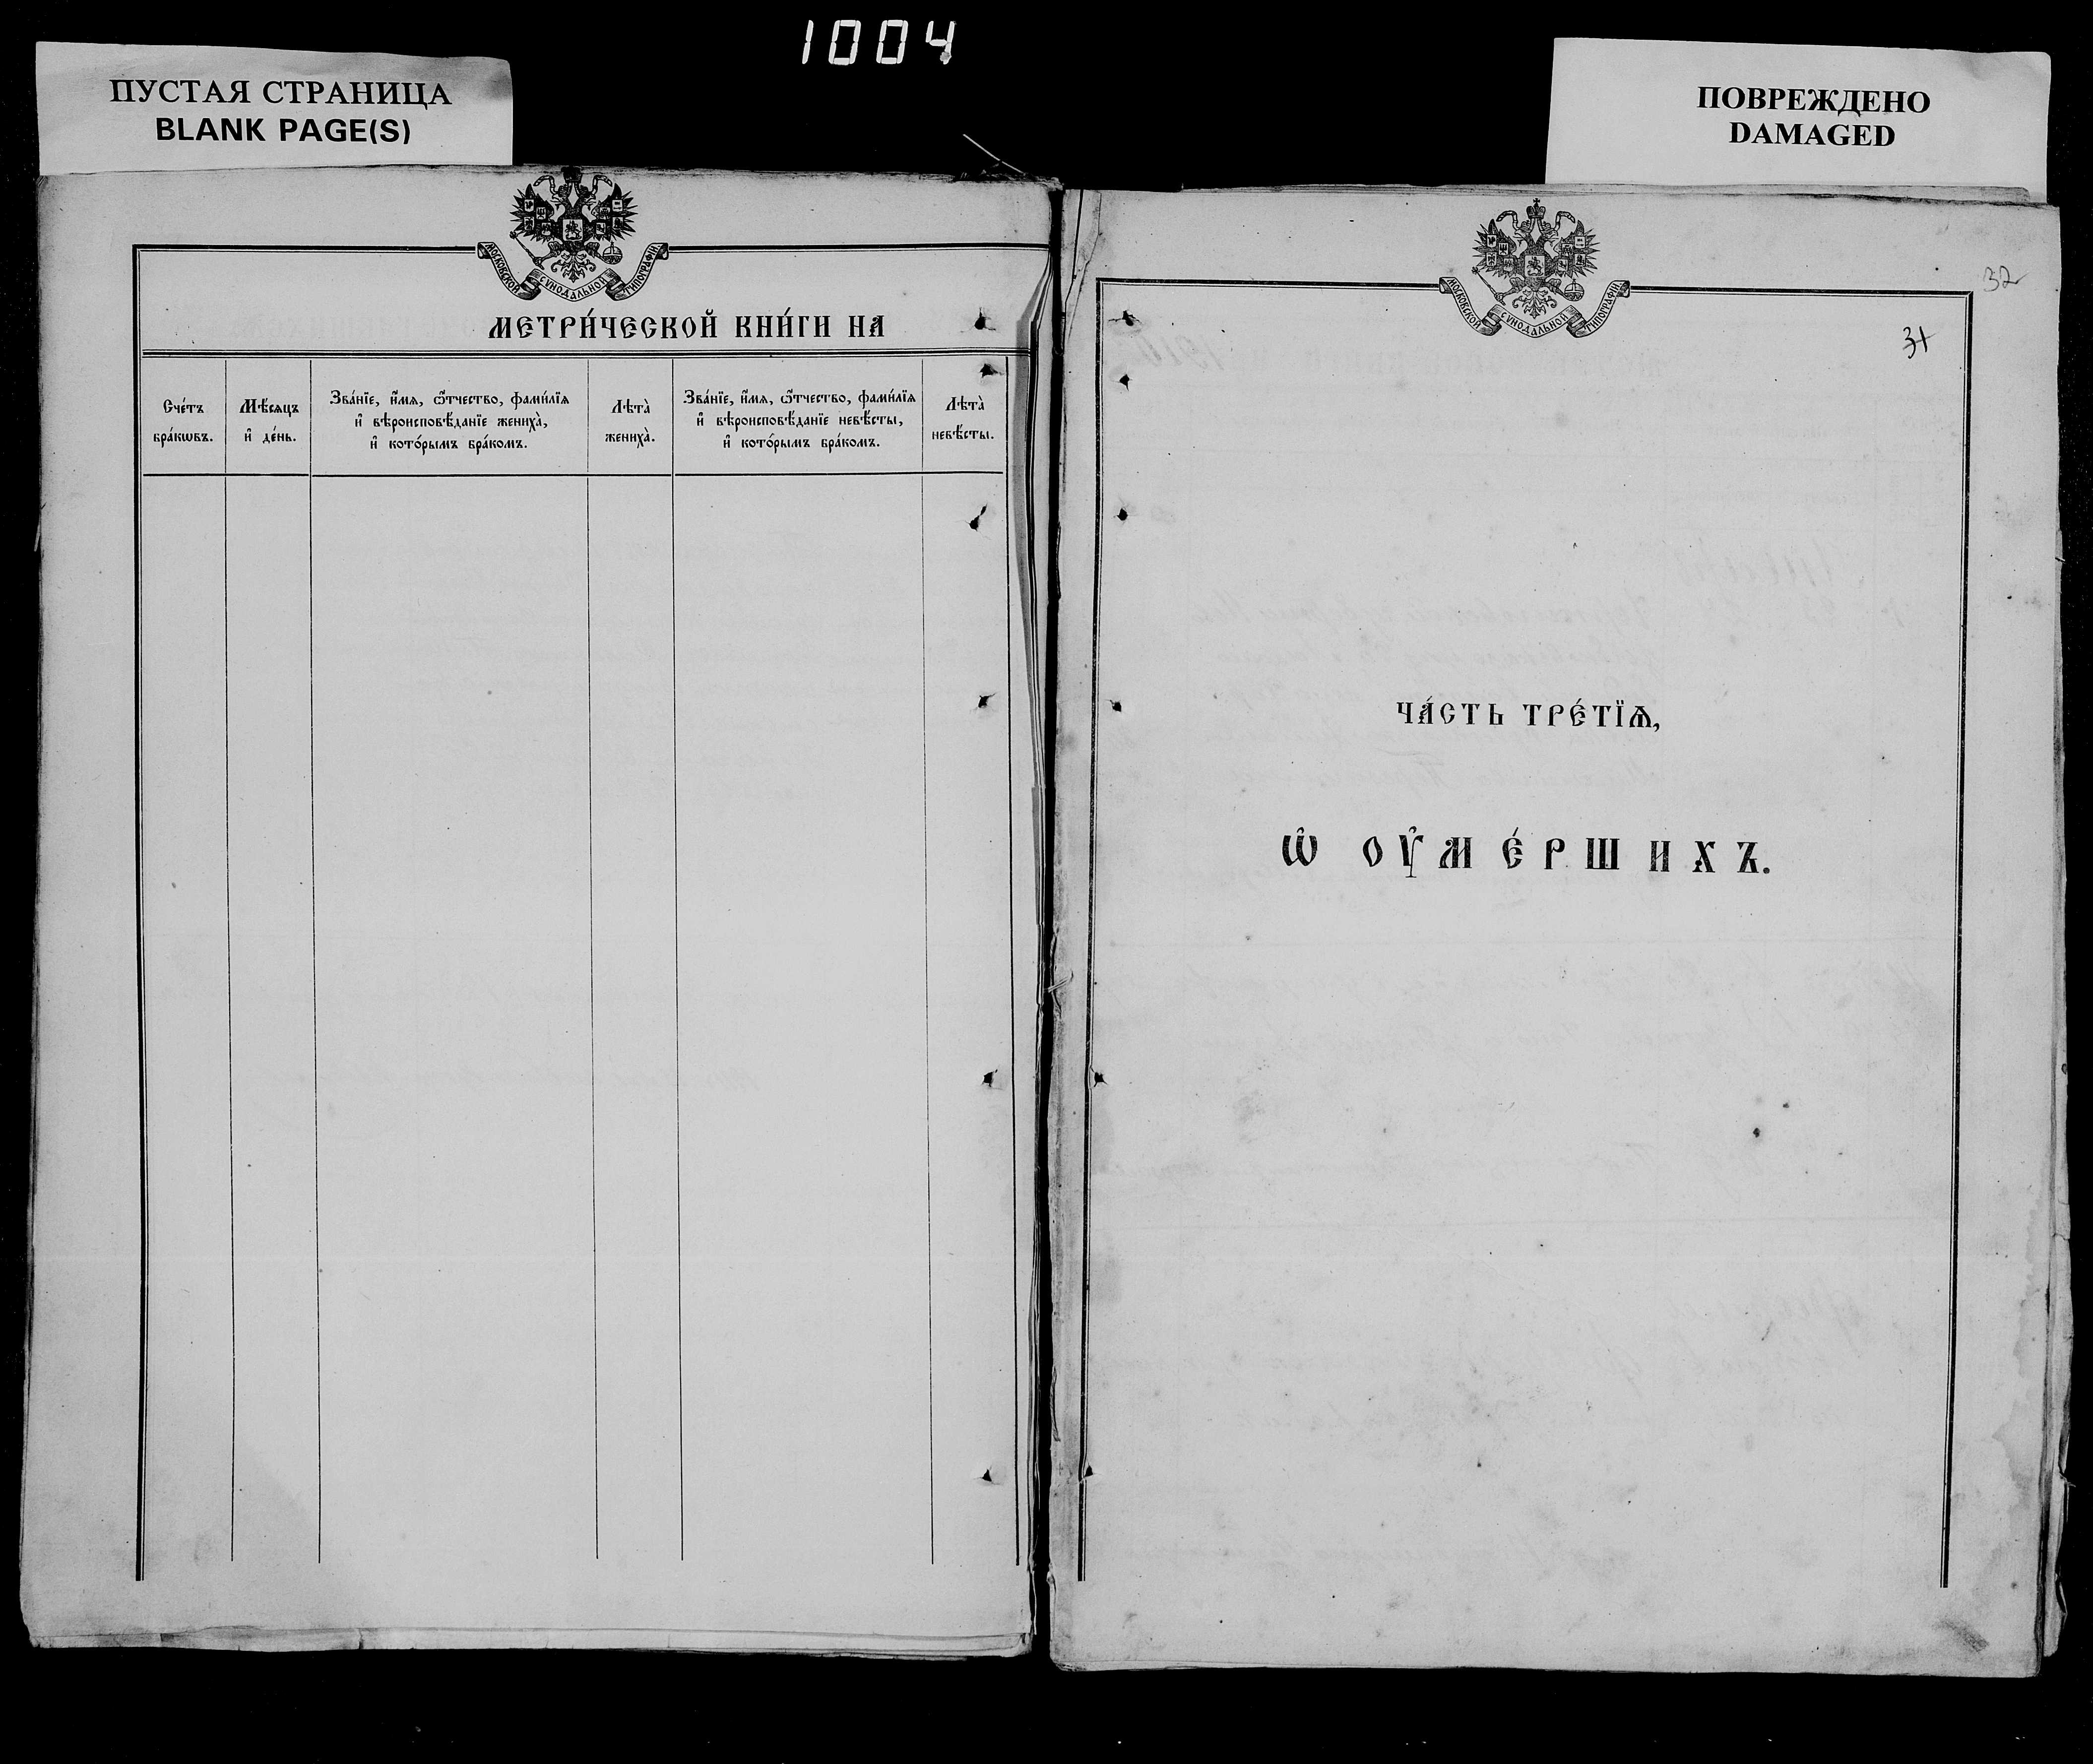 1004
ПУСТАЯ СТРАНИЦА
BLANK PAGE(S)
ПОВРЕЖДЕНО
DAMAGED
МОСКОВСКОЙ СѴНОДАЛЬНОЙ ТИПОГРАФІИ
МЕТРИ́ЧЕСКОЙ КНИ́ГИ НА
Сче́тъ
бра́кѡвъ.
Мѣ́сяцъ
и҆ де́нь.
Зва́нїе, и҆́мя, ѻ҆́тчество, фами́лїя
и҆ вѣроисповѣ́данїе жениха̀,
и҆ кото́рымъ бра́комъ.
Лѣта̀
жениха̀.
Зва́нїе, и҆́мя, ѻ҆́тчество, фами́лїя
и҆ вѣроисповѣ́данїе невѣ́сты,
и҆ кото́рымъ бра́комъ.
Лѣта̀
невѣ́сты.
МОСКОВСКОЙ СѴНОДАЛЬНОЙ ТИПОГРАФІИ
32
31
ЧА́СТЬ ТРЕ́ТЇѦ,
Ѡ҆ ОУ҆МЕ́РШИХЪ.